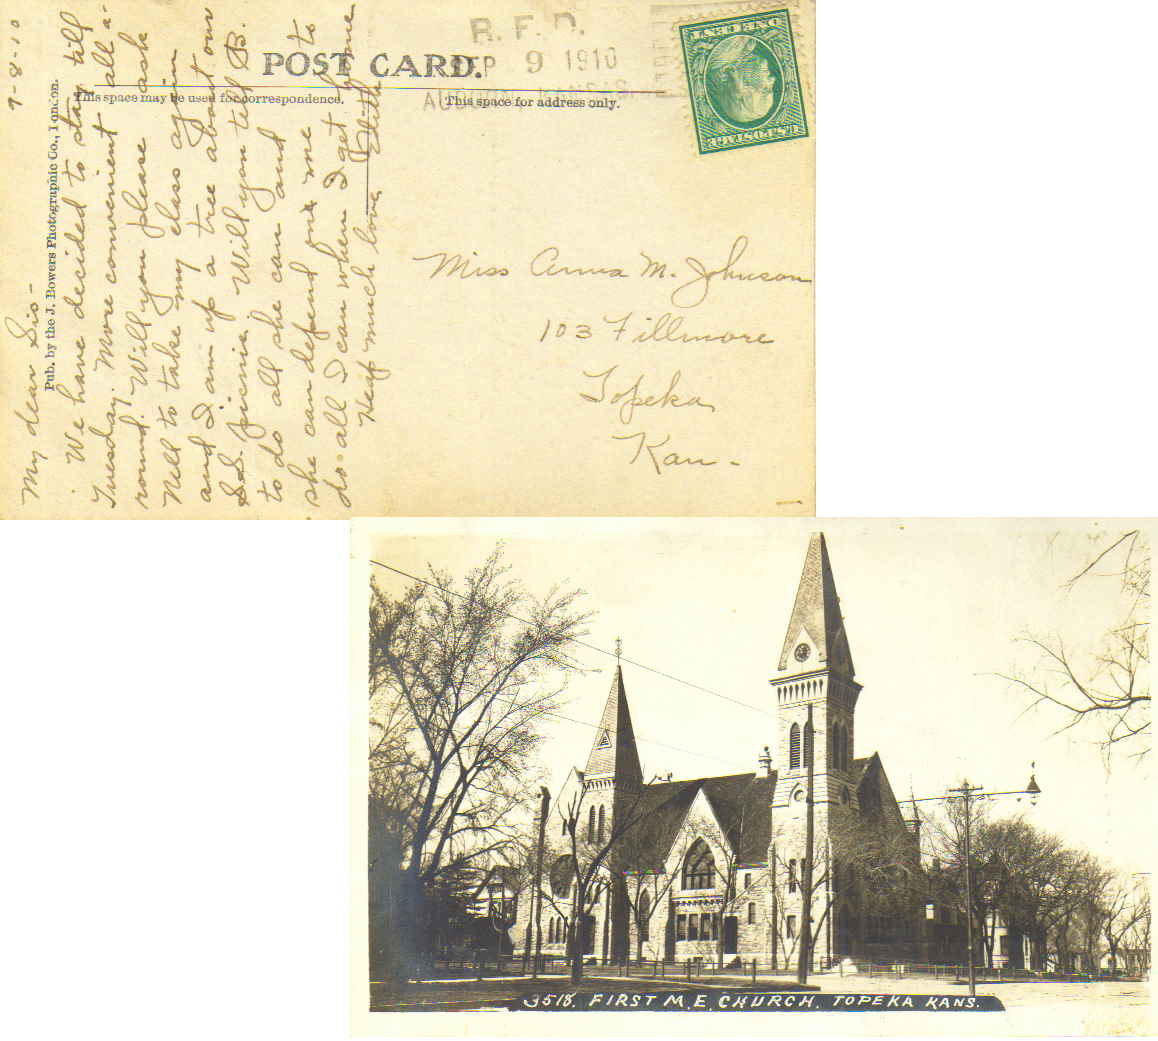 R. F. D.
SEP 9 1910
AUBURN, KANSAS.
POST CARD.
This space may be used for correspondence.
This space for address only.
Pub. by the J. Bowers Photographic Co., London.
9-8-10
My dear Sis-
We have decided to stay till
Tuesday. More convenient all a-
round. Will you please ask
Nell to take my class again
and I am up a tree about our
S.S. picnic. Will you tell B.
to do all she can and
she can depend on me to
do all I can when I get home
Heap much love Edith
Miss Anna M. Johnson
103 Fillmore
Topeka
Kan-
U.S. POSTAGE
ONE CENT
3518. FIRST M.E. CHURCH. TOPEKA KANS.